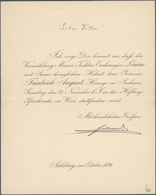 Lieber Vetter!
Ich zeige Dir hiemit an, daß die
Vermählung Meiner Tochter Erzherzogin Louise
mit Seiner königlichen Hoheit dem Prinzen
Friedrich August, Herzog zu Sachsen,
Samstag den 21. November l. J. in der Hofburg-
Pfarrkirche in Wien stattfinden wird.
Mit herzlichsten Grüßen
Salzburg, im October 1891.